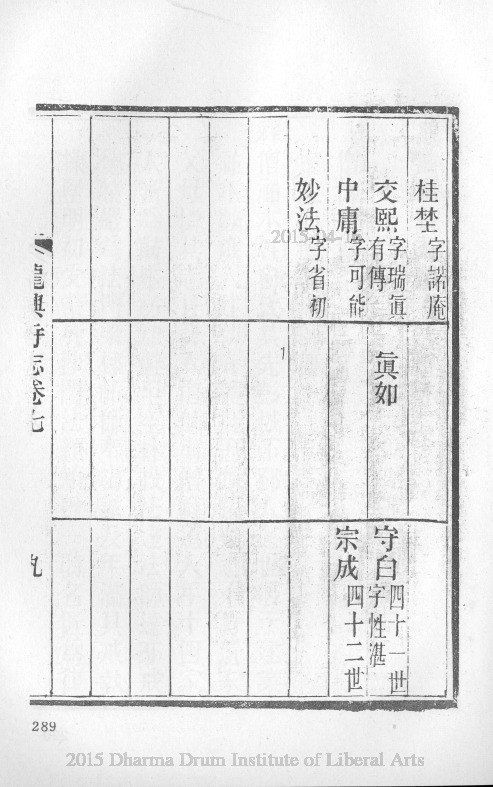 桂埜字諾庵
交熙字瑞眞有傳
中庸字可能
妙法字省初
眞如
守白四十一世字性湛
宗成四十二世
龍興寺志卷七
九
289
2015 Dharma Drum Institute of Liberal Arts